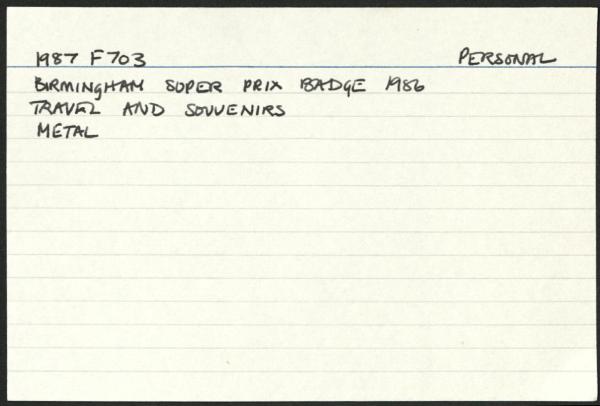 1987 F703 PERSONAL
BIRMINGHAM SUPER PRIX BADGE 1986
TRAVEL AND SOUVENIRS
METAL